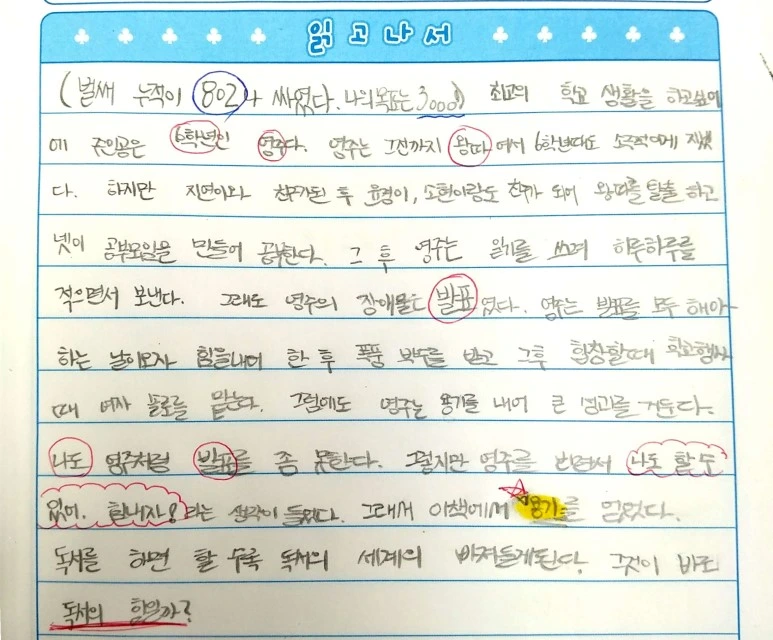 읽고나서
(벌써 누적이 802나 싸였다. 나의 목표는 3000!) 최고의 학교 생활을 하고싶어
에 주인공은 6학년인 영주다. 영주는 그전까지 왕따에서 6학년때도 소극적이게 지냈
다. 하지만 지연이와 친구가된 후 윤경이, 소현이랑도 친구가 되어 왕따를 탈출 하고
넷이 공부모임을 만들어 공부한다. 그 후 영주는 일기를 쓰며 하루하루를
적으면서 보낸다. 그래도 영주의 장애물은 발표였다. 영주는 발표를 모두 해야
하는 날이오자 힘을내어 한 후 폭풍 박수를 받고 그후 합창할때 학교행사
때 여자 솔로를 맡는다. 그럼에도 영주는 용기를 내어 큰 성과를 거둔다.
나도 영주처럼 발표를 좀 못한다. 그렇지만 영주를 보면서 나도 할 수
있어. 힘내자! 라는 생각이 들었다. 그래서 이책에서 용기를 얻었다.
독서를 하면 할 수록 독서의 세계의 빠져들게된다. 그것이 바로
독서의 힘일까?